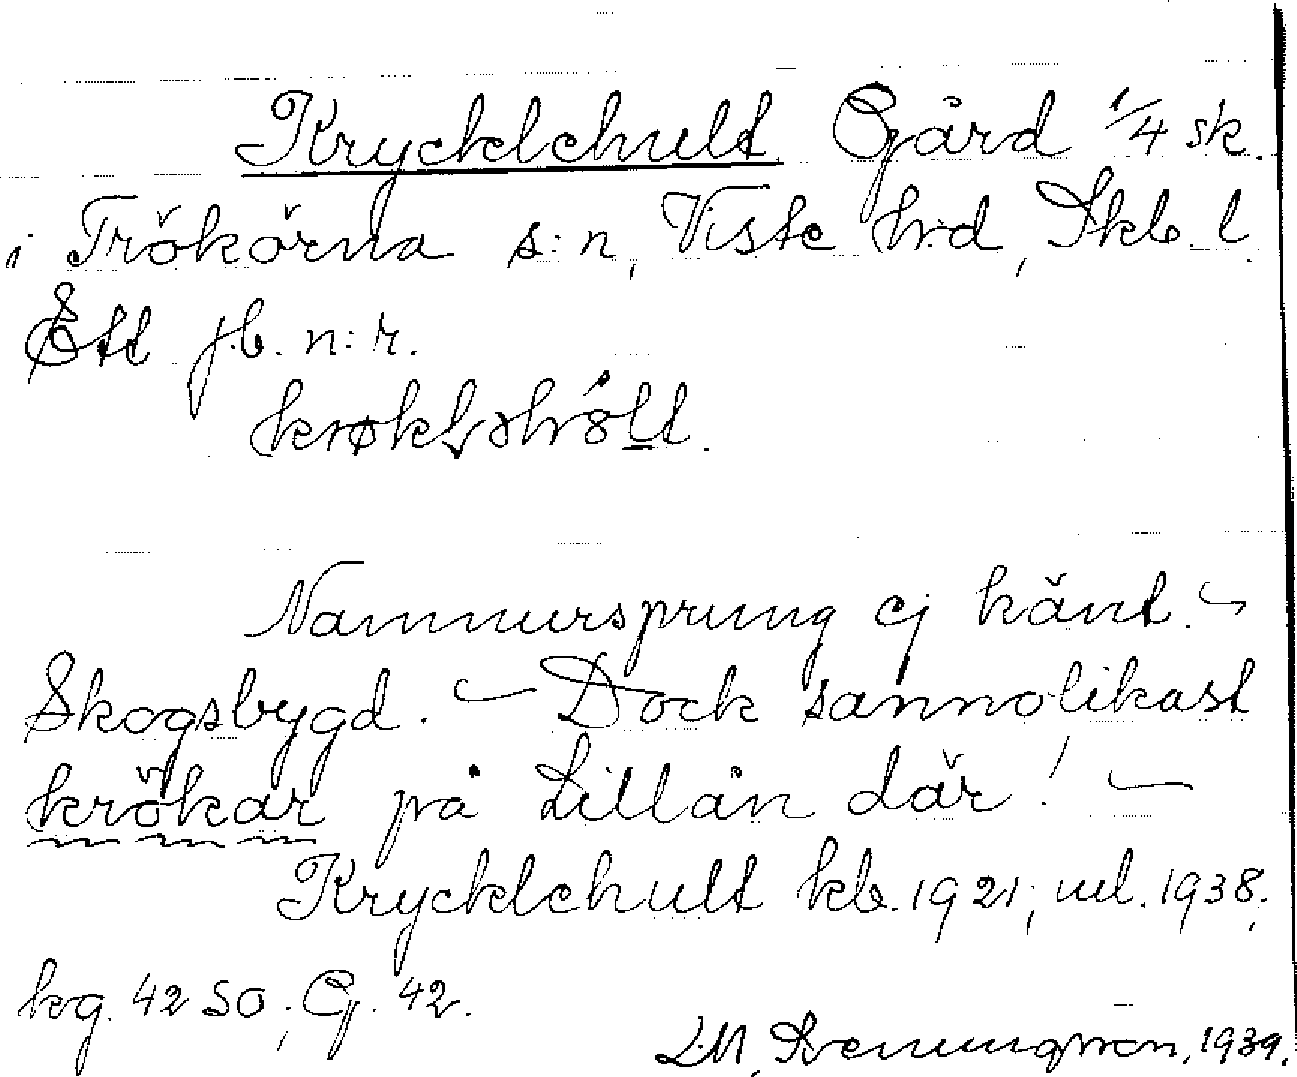 Krycklehult Gård 1/4 sk.
i Trökörna s:n, Viste hrd, Skb. l.
Ett jb. n:r.
Namnursprung ej känt. -
Skogsbygd. - Dock sannolikast
krökar på Lillån där! -
Krycklehult kb. 1921; uul. 1938.
kg. 42 SO; G. 42.
L.M. Svenungsson, 1939.